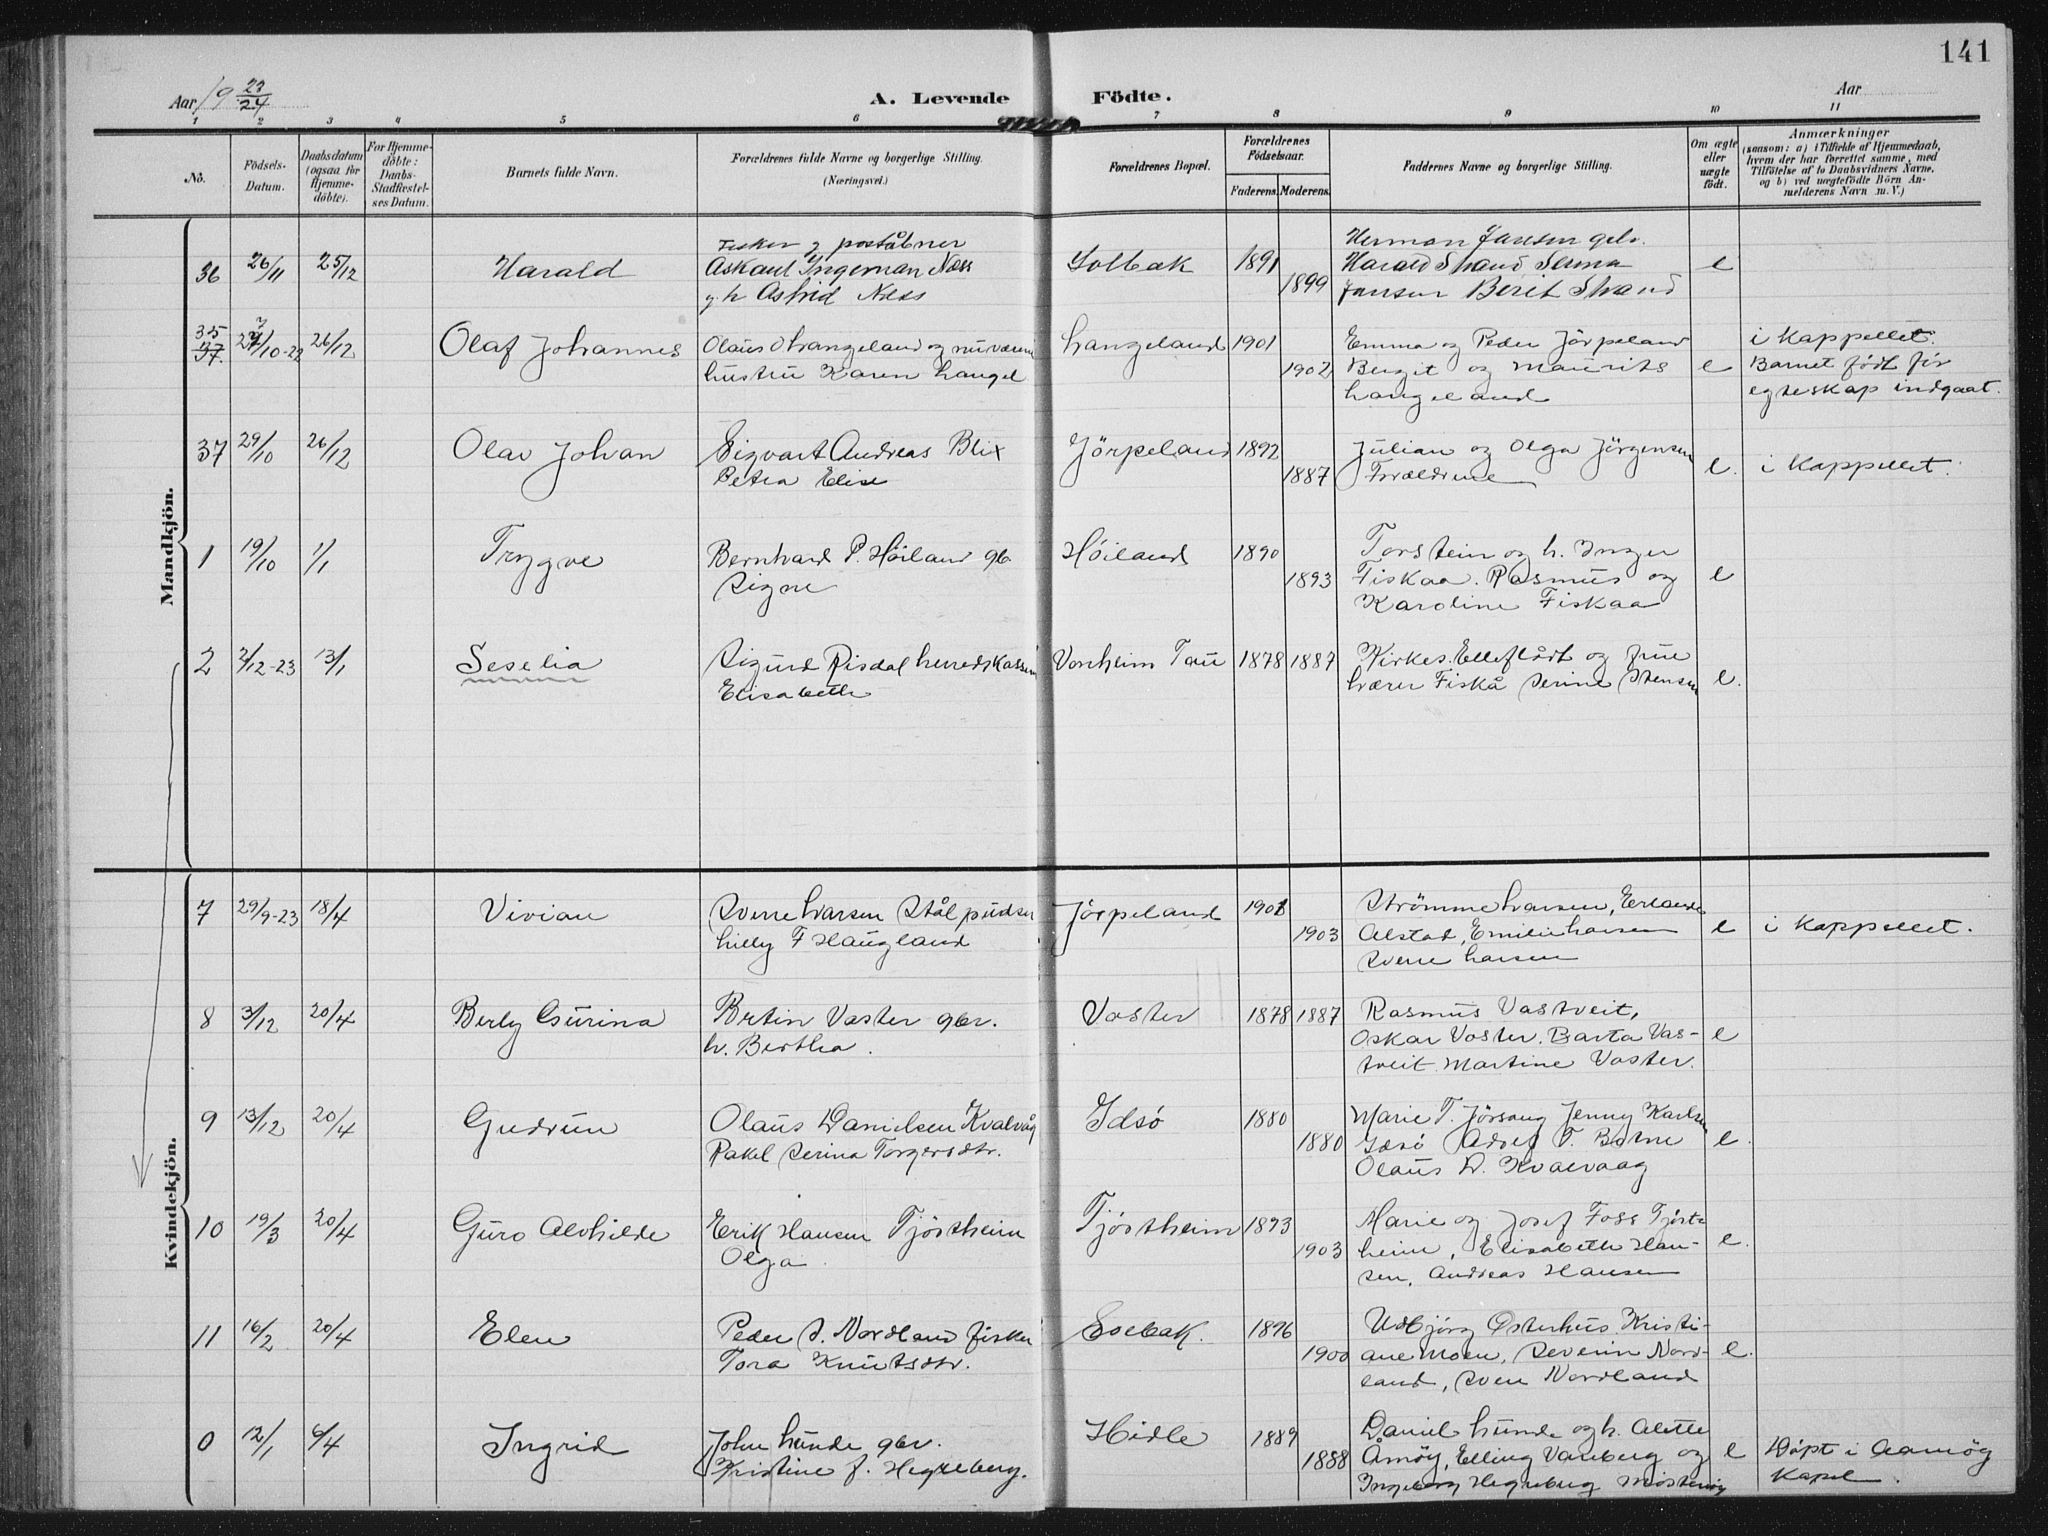 141
Aar 19 23/24
A. Levende Födte.
Aar
1 2 3 4 5 6 7 8 9 10 11
No.
Födsels-Datum.
Daabsdatum (ogsaa for Hjemme-döbte).
For Hjemme-döbte: Daabs-Stadfæstel-ses Datum.
Barnets fulde Navn.
Forældrenes fulde Navne og borgerlige Stilling.
(Næringsvei.)
Forældrenes Bopæl.
Forældrenes Födselsaar.
Faderens. Moderens.
Faddernes Navne og borgerlige Stilling.
Om ægte eller uægte födt.
Anmærkninger
(saasom: a) i Tilfælde af Hjemmedaab, hvem der har forrettet samme, med Tilföielse af to Daabsvidners Navne, og b) ved uægtefödte Börn An-melderens Navn m. V.)
Mandkjön.
36 26/11 25/12 Harald
Fisker og poståbner
Askaut Ingeman Næss
g. h Astrid Næss
Solbak 1891 1899
Herman Jansen gbr.
Harald Strand Serina
Jansen Berit Strand
e
35 37. 27/10-22 26/12 Olaf Johannes
Olaus O Langeland og nuværen
hustru Karen Langel
Langeland 1901 1902
Emma og Peder Jörpeland
Bergit og Maurits
Langeland
e
i Kappellet.
Barnet födt för
egteskap indgaat.
37 29/10 26/12 Olav Johan
Sigvart Andreas Blix
Petra Elise
Jörpeland 1892 1887
Julian og Olga Jörgensen
Forældrene
e. i Kappellet.
1 19/10 1/1 Trygve
Bernhard P. Höiland gb.
Signe
Höiland 1890 1893
Torstein og h. Inger
Fiskaa. Rasmus og
Karoline Fiskaa
e
2 2/12-23 13/1 Seselia
Sigurd Risdal herredskasser
Elisabeth
Vonheim Tau 1878 1887
Kirkes. Elleflåt og frue
Lærer Fiskå Serine Stensen
e.
Kvindekjön.
7 29/9-23 18/4 Vivian
Sverre Larsen Stålpudser
Lilly F Haugland
Jörpeland 1901 1903
Strömme Larsen, Erlande
Alstad, Emilie Larsen
Sverre Larsen
e i Kappellet.
8 3/12 20/4 Berly Gurina
Bertin Vaster gbr.
h. Bertha.
Vaster 1878 1887
Rasmus Vastveit,
Oskar Vaster. Barta Vas-
tveit Martine Vaster.
e
9 13/12 20/4 Gudrun
Olaus Danielsen Kvalvåg
Rakel Serina Torgersdtr.
Idsö 1880 1880
Marie T. Jörsang Jenny Karlsen
Idsö Adolf T. Botne
Olaus D. Kvalvaag
e.
10 19/3 20/4 Guro Alvhilde
Erik Hansen Tjöstheim
Olga.
Tjöstheim 1893 1903
Marie og Josef Foss Tjöst-
heim, Elisabeth Han-
sen, Andreas Hansen
e.
11 16/2 20/4 Elen
Peder S. Nordland fisker
Tora Knutsdtr.
Solbak. 1896 1900
Udbjörg Österhus Kristi-
ane Moen, Severin Nord-
land, Sven Nordland
e.
0 12/1 6/4 Ingrid
John Lunde gbr.
Kristine f. Hegreberg.
Hidle 1889 1888
Daniel Lunde og h. Alette
Åmöy, Elling Vareberg og
Ingeborg Hegreberg Mosteröy
e
Döpt i Aamöy
Kapel.